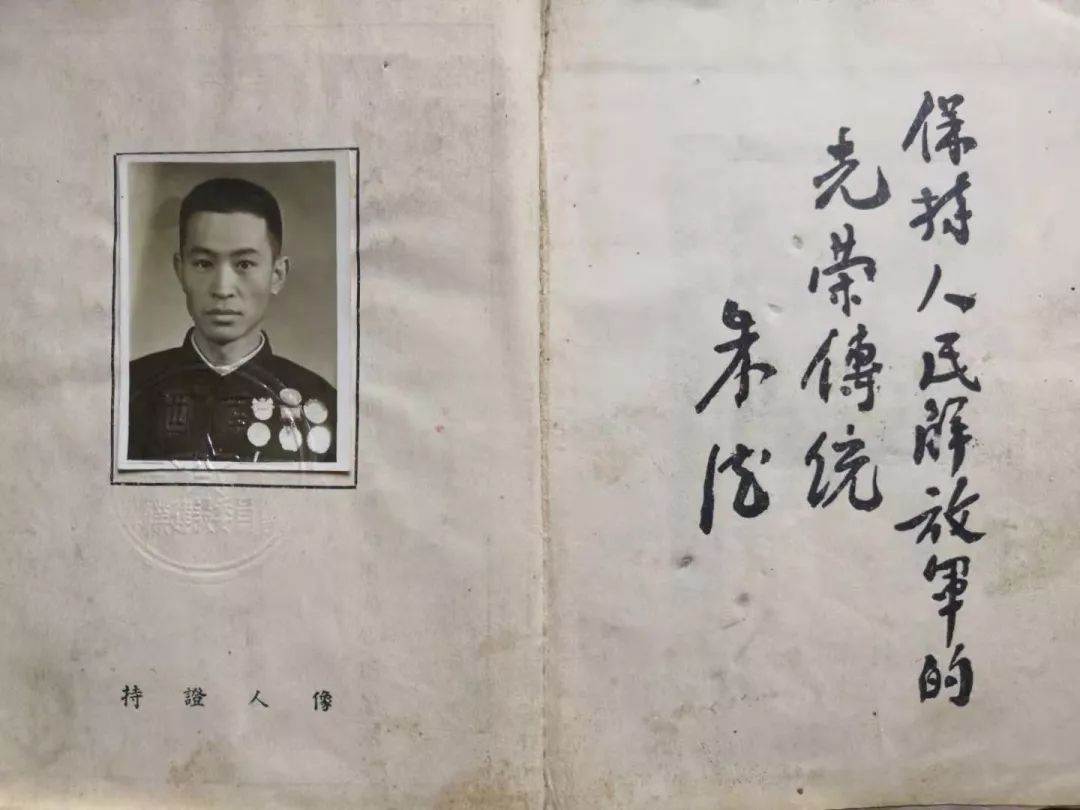 保持人民解放军的
光荣傳统
朱德
持證人像